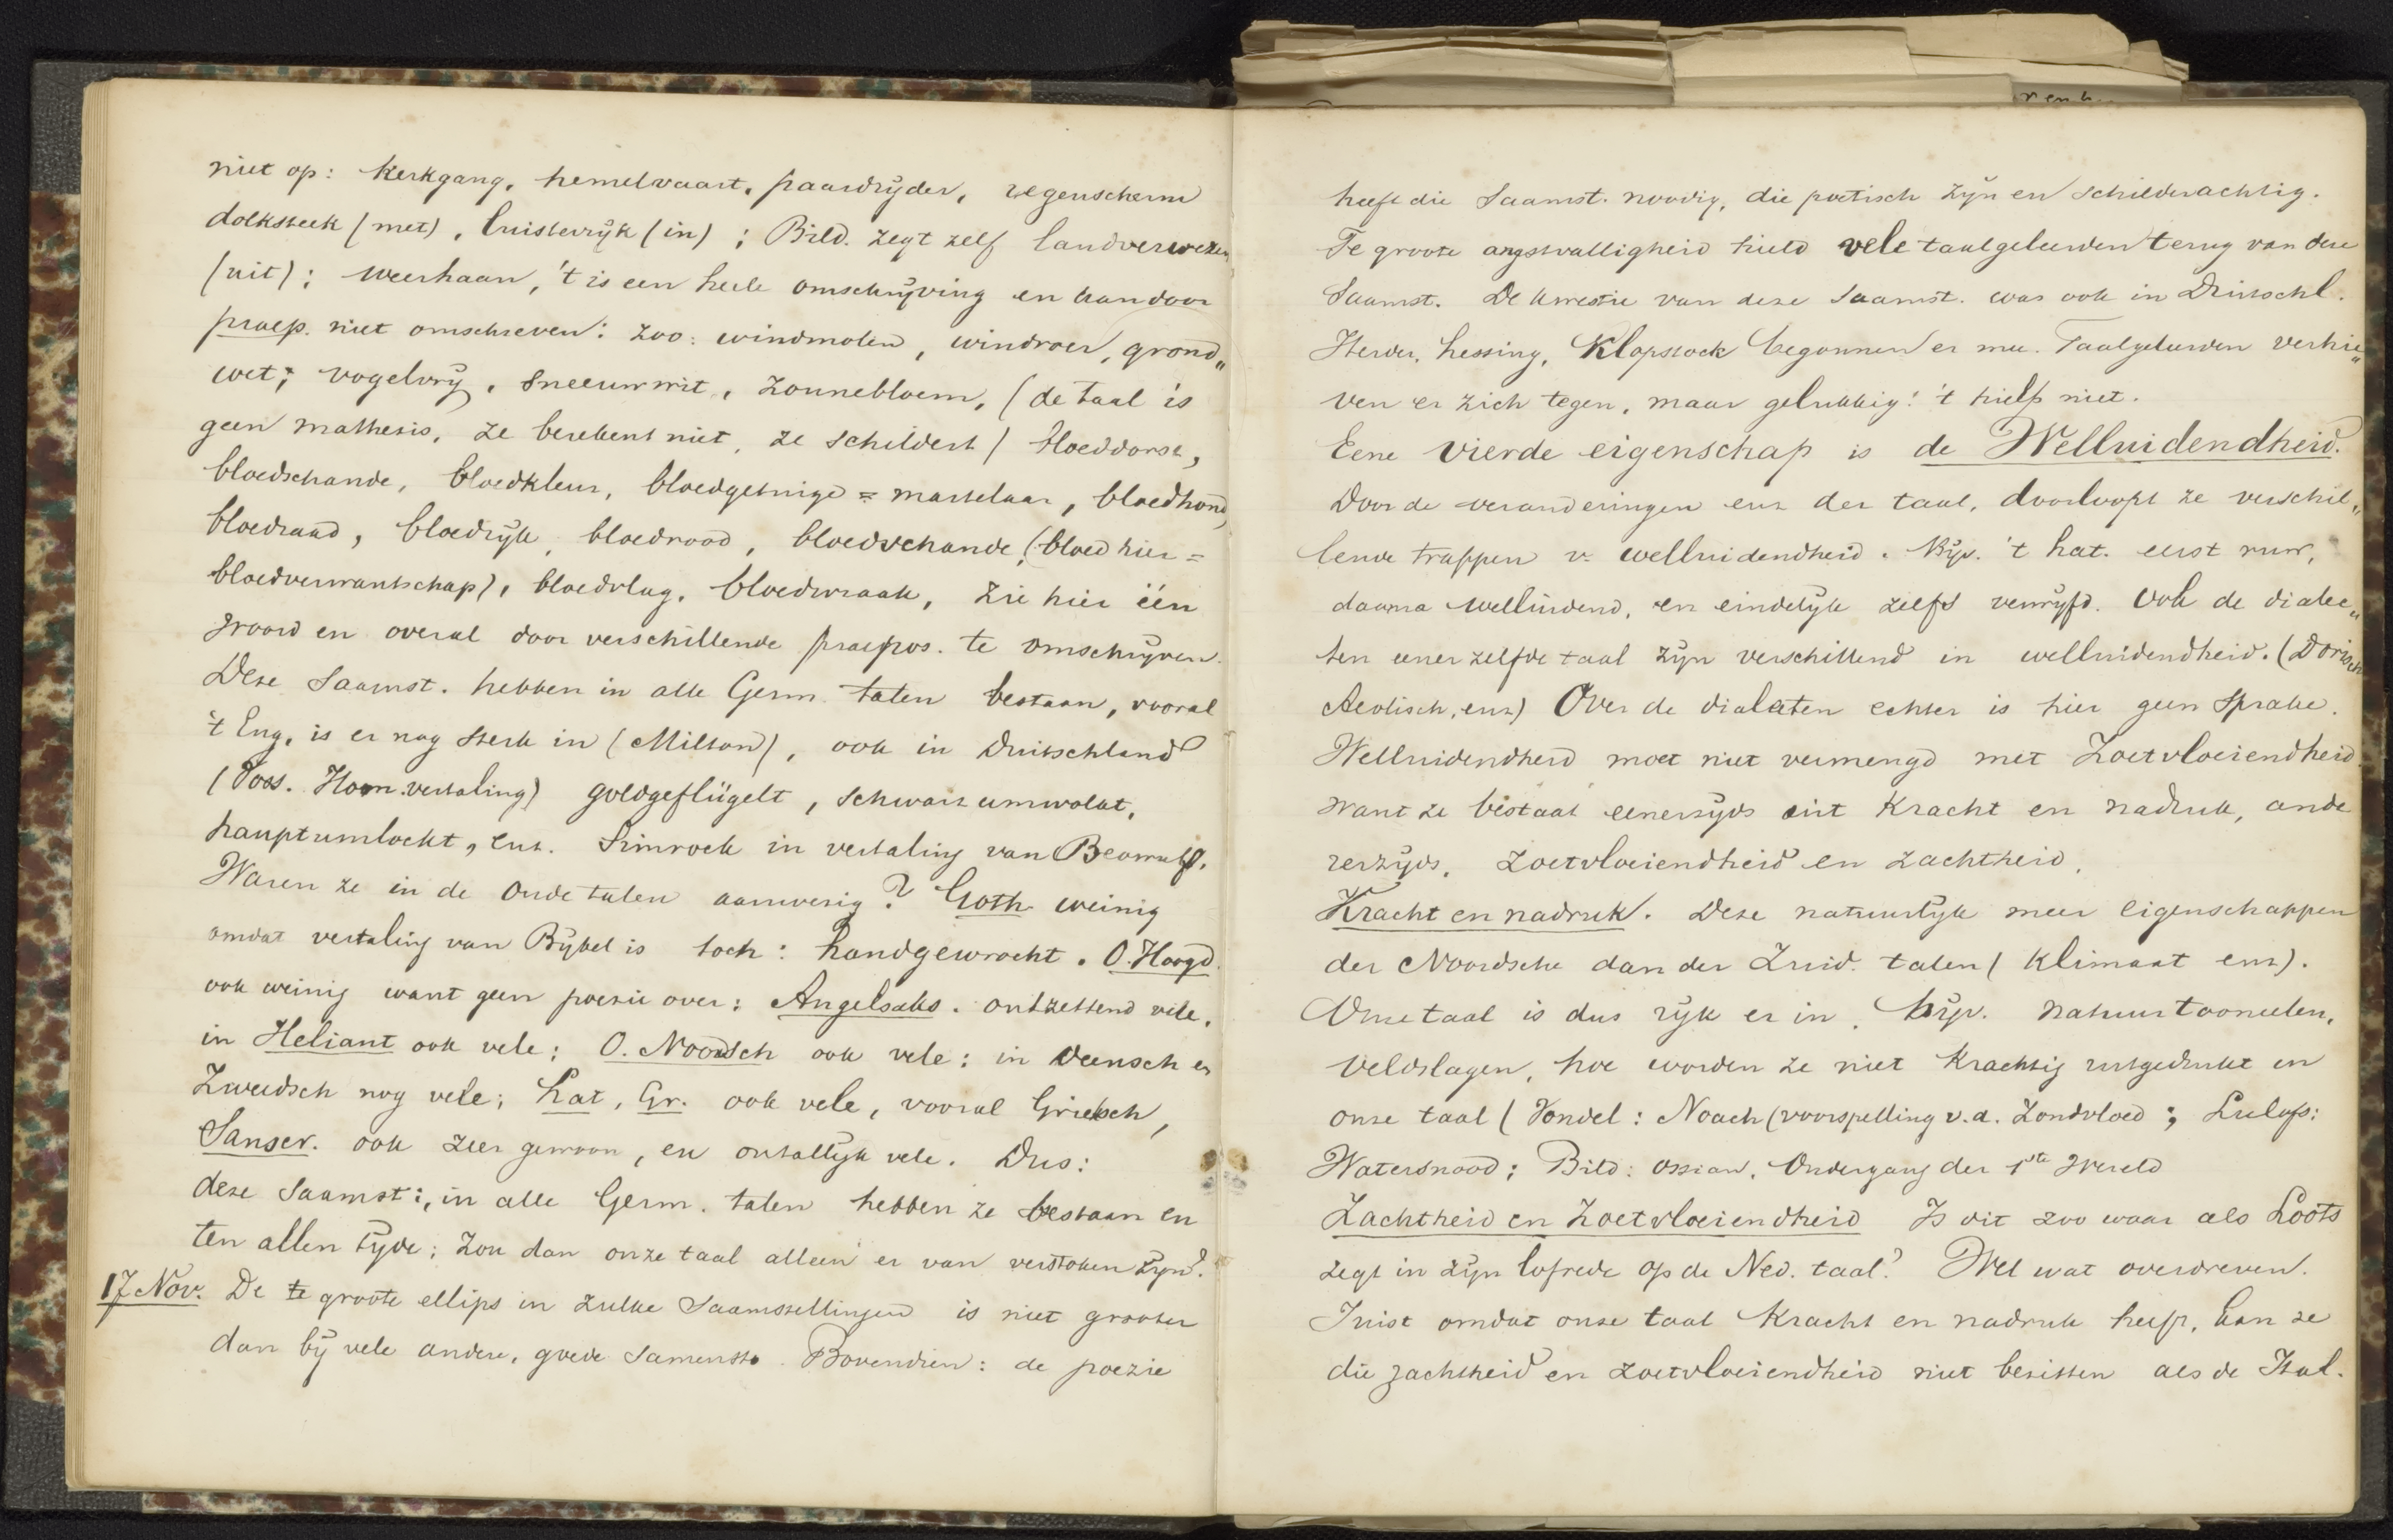 niet op: Kerkgang, hemelvaart, paardrijder, regenscherm
dolksteek (met), luisterrijk (in); Bild. zegt zelf landverwezen
(uit); weerhaan, 't is een heele omschrijving en kan door
praep. niet omschreven: zoo: windmolen, windroer, grond„
wet; vogelvrij, sneeuwwit, zonnebloem, (de taal is
geen mathesis, ze berekent niet, ze schildert) bloeddorst,
bloedschande, bloedkleur, bloedgetuige = martelaar, bloedhond,
bloedraad, bloedrijk, bloedrood, bloedschande, (bloed hier =
bloedverwantschap), bloedvlag, bloedwraak, zie hier één
woord en overal door verschillende praepos. te omschrijven.
Deze Saamst. hebben in alle Germ. talen bestaan, vooral
't Eng. is er nog sterk in (Milton), ook in Duitschland
(Voss. Hom. vertaling) goldgeflügelt, schwarz umwolkt,
hauptumlockt, enz. Simrock in vertaling van Beowulf.
Waren ze in de oude talen aanwezig? Goth. weinig
omdat vertaling van Bijbel is toch: handgewrocht. O. Hoogd.
ook weinig want geen poezie over: Angelsaks. ontzettend vele,
in Heliant ook vele; O. Noordsch ook vele: in Deensch en
Zweedsch nog vele; Lat, Gr. ook vele, vooral Grieksch,
Sanscr. ook zeer gewoon, en ontallijk vele. Dus:
deze Saamst:, in alle Germ. talen hebben ze bestaan en
ten allen tijde; zou dan onze taal alleen er van verstoken zijn?
17 Nov. De te groote ellips in zulke Saamstellingen is niet grooter
dan bij vele andere, goede Samenst. Bovendien: de poezie
heeft die Saamst. noodig, die poetisch zijn en schilderachtig.
Te groote angstvalligheid hield vele taalgeleerden terug van deze
Saamst. De kwestie van deze Saamst. was ook in Duitschl.
Herder, Lessing, Klopstock begonnen er mee. Taalgeleerden verhie„
ven er zich tegen, maar gelukkig! 't hielp niet.
Eene vierde eigenschap is de Welluidendheid.
Door de veranderingen enz der taal, doorloopt ze verschil„
lende trappen v. welluidendheid. Bijv. 't Lat. eerst ruw,
daarna welluidend, en eindelijk zelfs verwijfd. Ook de dialec„
ten eener zelfde taal zijn verschillend in welluidendheid. (Dorisch
Aeolisch, enz) Over de dialecten echter is hier geen sprake.
Welluidendheid moet niet vermengd met Zoetvloeiendheid
want ze bestaat eenerzijds uit Kracht en nadruk, ande
rerzijds, zoetvloeiendheid en zachtheid.
Kracht en nadruk. Deze natuurlijk meer eigenschappen
der Noordsche dan der Zuid. talen (Klimaat enz).
Onze taal is dus rijk er in. bijv. natuurtooneelen,
veldslagen, hoe worden ze niet krachtig uitgedrukt in
onze taal (Vondel: Noach (voorspelling v.d. Zondvloed; Lulofs:
Watersnood; Bild: Ossian, Ondergang der 1ste Wereld
Zachtheid en Zoetvloeiendheid Is dit zoo waar als Loots
zegt in zijn lofrede op de Ned. taal? Wel wat overdreven.
Juist omdat onze taal Kracht en nadruk heeft, kan ze
die zachtheid en zoetvloeiendheid niet bezitten als de Ital.